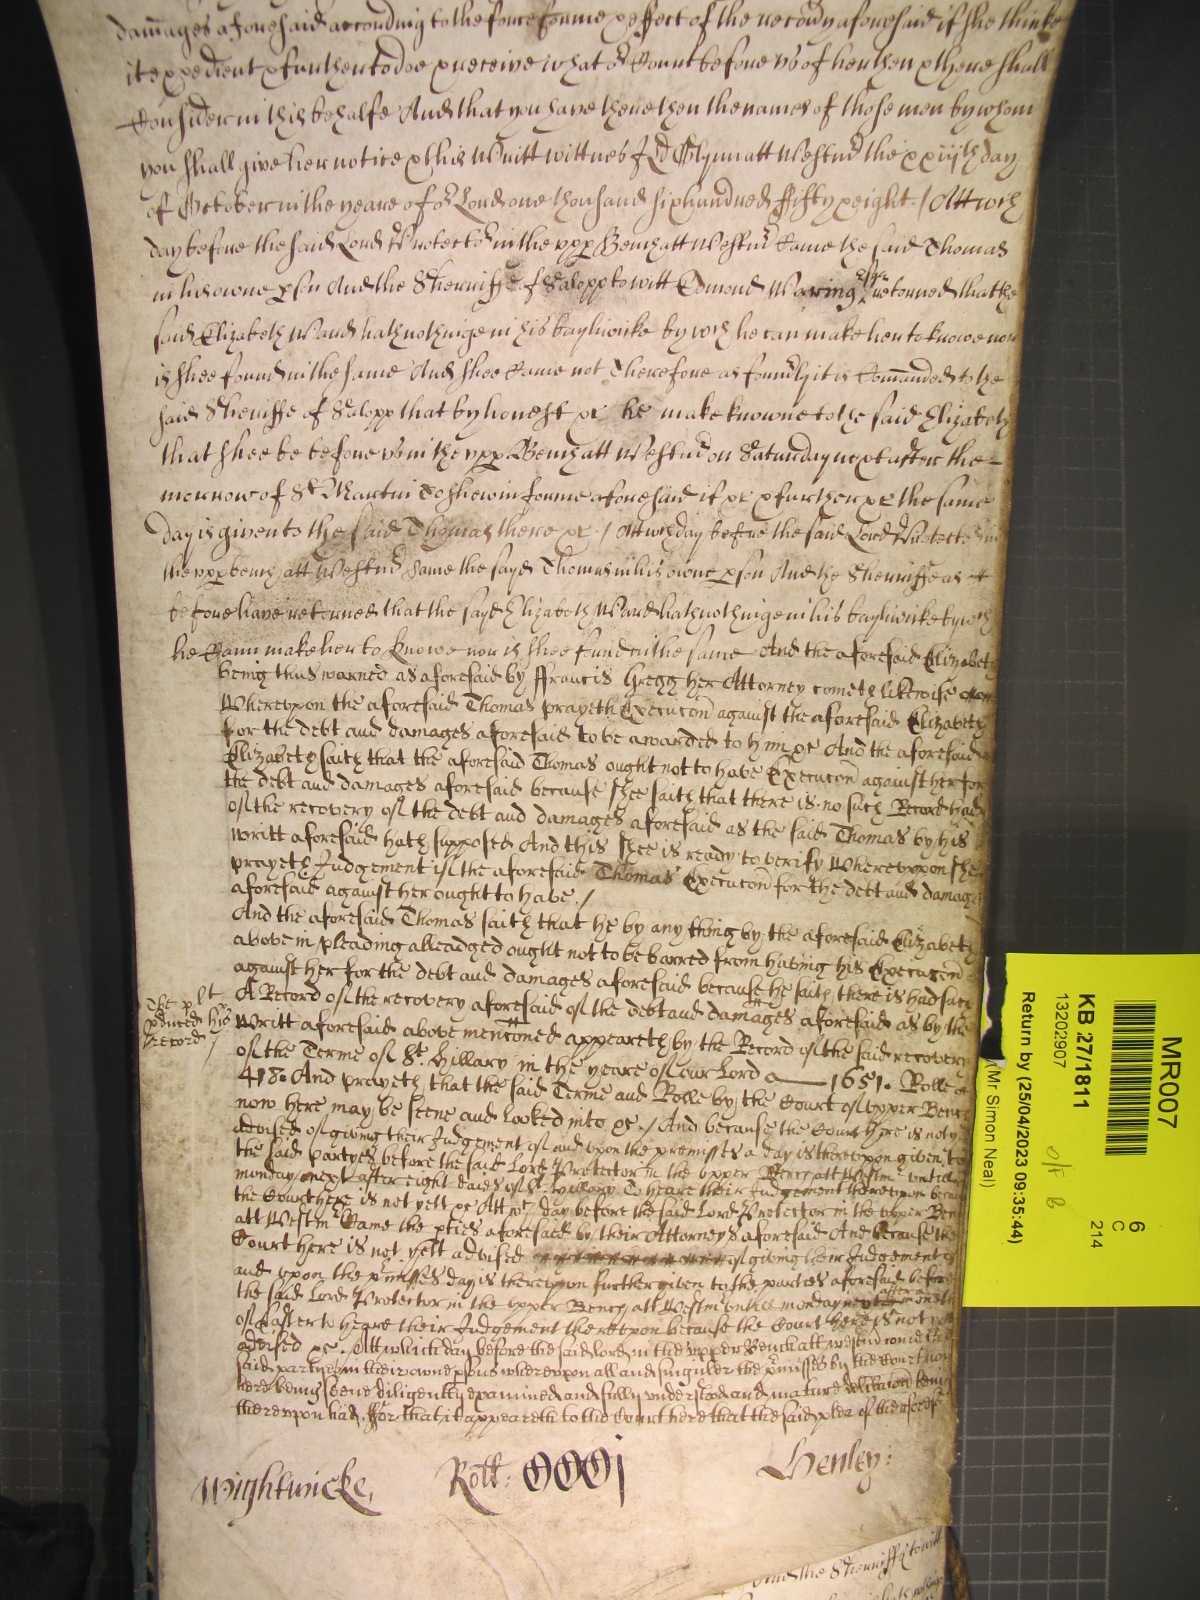 damages aforesaid according to the force forme & effect of the recovy aforesaid if she thinke
it expedient & further to doe & receive what or Court before us of her then & there shall
Consider in this behalfe And that you have there then the names of those men by whom
you shall give her notice & this Writt wittnes J Ld Glynn att Westmr the xxiijth day
of October in the yeare of or Lord one thousand six hundred fifty & eight / Att wch
day before the said Lord Protector in the upp Bench att Westmr Came the said Thomas
in his owne pson And the Sherriffe of Salopp to witt Edmond Waring esqr retorned that the
said Elizabeth Ward hath nothinge in his bayliwike by wch he can make her to knowe nor
is shee found in the same And shee Came not Therefore as formly it is Comanded to the
said Sheriffe of Salopp that by honest &c he make knowne to the said Elizabeth
that shee be before us in the upp Bench att Westmr on Saturday next after the
morrow of St Martin To shew in forme aforesaid if &c & further &c the same
day is given to the said Thomas there &c / Att wch day before the said Lord Protector in
the upp bench att Westmr Came the sayd Thomas in his owne pson And the Sherriffe as
before have retorned that the sayd Elizabeth Ward hath nothinge in his bayliwike by wch
he Cann make her to knowe nor is shee found in the same And the aforesaid Elizabeth
being thus warned as aforesaid by ffrancis Gregg her Attorney cometh likewise
Whereupon the aforesaid Thomas prayeth Execucon against the aforesaid Elizabeth
for the debt and damages aforesaid to be awarded to him &c And the aforesaid
Elizabeth saith that the aforesaid Thomas ought not to have Execucon against her for
the debt and damages aforesaid because shee saith that there is no such Record had
of the recovery of the debt and damages aforesaid as the said Thomas by his
writt aforesaid hath supposed And this shee is ready to verify Whereupon shee
prayeth Judgement if the aforesaid Thomas Execucon for the debt and damages
aforesaid against her ought to have /
And the aforesaid Thomas saith that he by any thing by the aforesaid Elizabeth
above in pleading alleadged ought not to be barred from having his Execucon
against her for the debt and damages aforesaid because he saith there is had such
The plt
pduced his
record /
A Record of the recovery aforesaid of the debt and damages aforesaid as by the
Writt aforesaid above mencioned appeareth by the Record of the said recovery
of the Terme of St. Hillary in the yeare of our Lord 1651. Rolle
418. And prayeth that the said Terme and Rolle by the Court of upper Bench
now here may be seene and looked into &c / And because the Court here is not
advised of giving their Judgement of and upon the premisses a day is thereupon given to
the said partyes before the said Lord Protector in the upper Bench att Westmr untill
monday next after eight daies of St Hillary To heare their Judgement thereupon because
the Court here is not yett &c Att wch day before the said Lord Protector in the upper Bench
att Westm Came the pties aforesaid by their Attorneys aforesaid And because the
Court here is not yett advised of giving their Judgement of
and upon the pmisses day is thereupon further given to the parties aforesaid before
the said Lord Protector in the upper Bench att Westm untill monday next after a moneth
of Easter to heare their Judgement thereupon because the Court here is not yett
advised &c. Att which day before the said lord in the upper Bench att westmr come the
said partyes in their owne psons whereupon all and singuler the pmisses by the Court now
here being seene diligently examined and fully understood and mature deliberacon being
thereupon had, ffor that it appeareth to the Court here that the said plea of the said
Wightwicke, Rott: Henley:
And the Sherriffe to witt
MR007
KB 27/1811
13202907
6
C
214
O/F B
(Mr Simon Neal)
Return by (25/04/2023 09:35:44)